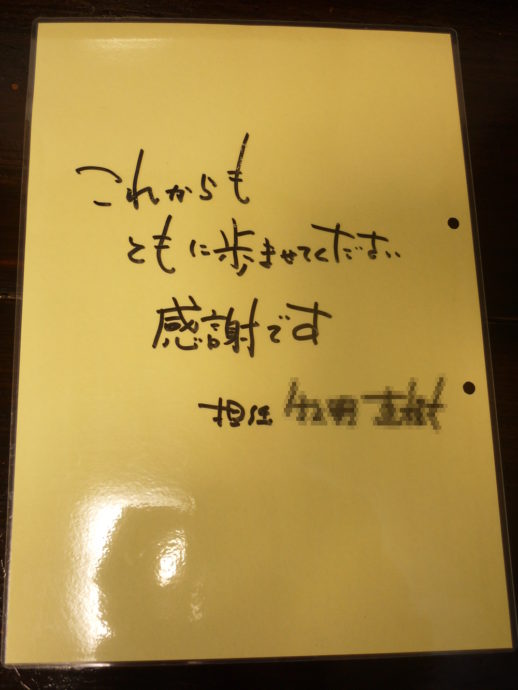 これからも
ともに歩ませてください
感謝です
担任